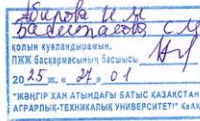 Абирова И.М
Баситасова С М
қолын куәландырамын.
ПЖЖ басқармасының басшысы
20 25 ж. « 27 » 01
"ЖӘҢГІР ХАН АТЫНДАҒЫ БАТЫС ҚАЗАҚСТАН
АГРАРЛЫҚ-ТЕХНИКАЛЫҚ УНИВЕРСИТЕТІ" КеАҚ